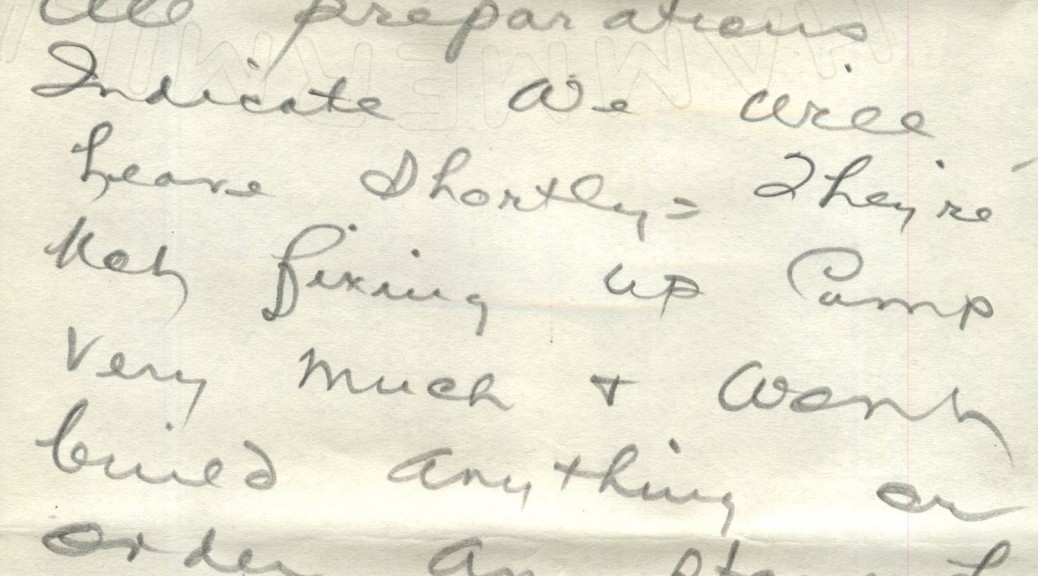 All preparations
Indicate We will
Leave Shortly = They're
Not fixing up Camp
Very much & wont
build anything or
order an